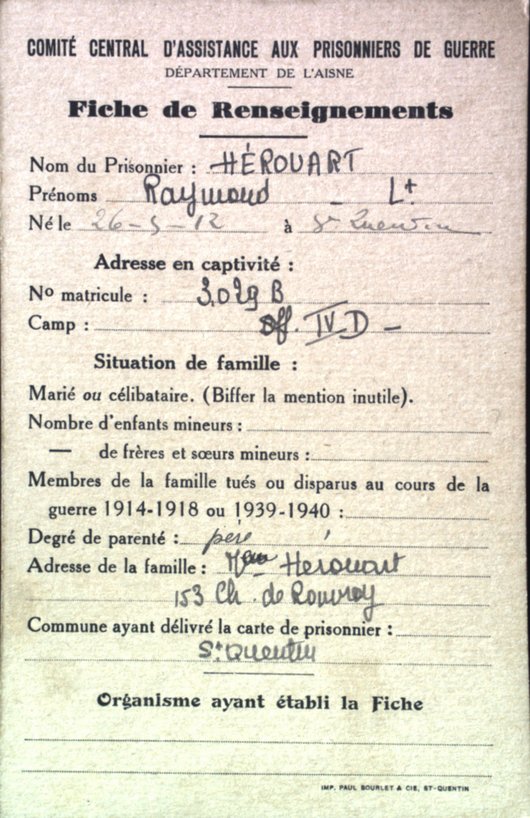 COMITÉ CENTRAL D'ASSISTANCE AUX PRISONNIERS DE GUERRE
DÉPARTEMENT DE L'AISNE
Fiche de Renseignements
Nom du Prisonnier : HÉROUART
Prénoms Raymond - Lt
Né le 26-5-12 à St Quentin
Adresse en captivité :
No matricule : 3.029 B
Camp : Off. IV D -
Situation de famille :
Marié ou célibataire. (Biffer la mention inutile).
Nombre d'enfants mineurs :
— de frères et sœurs mineurs :
Membres de la famille tués ou disparus au cours de la
guerre 1914-1918 ou 1939-1940 :
Degré de parenté : père
Adresse de la famille : Mme Herouart
153 Ch. de Rouvroy
Commune ayant délivré la carte de prisonnier :
St Quentin
Organisme ayant établi la Fiche
IMP. PAUL BOURLET & CIE, ST-QUENTIN